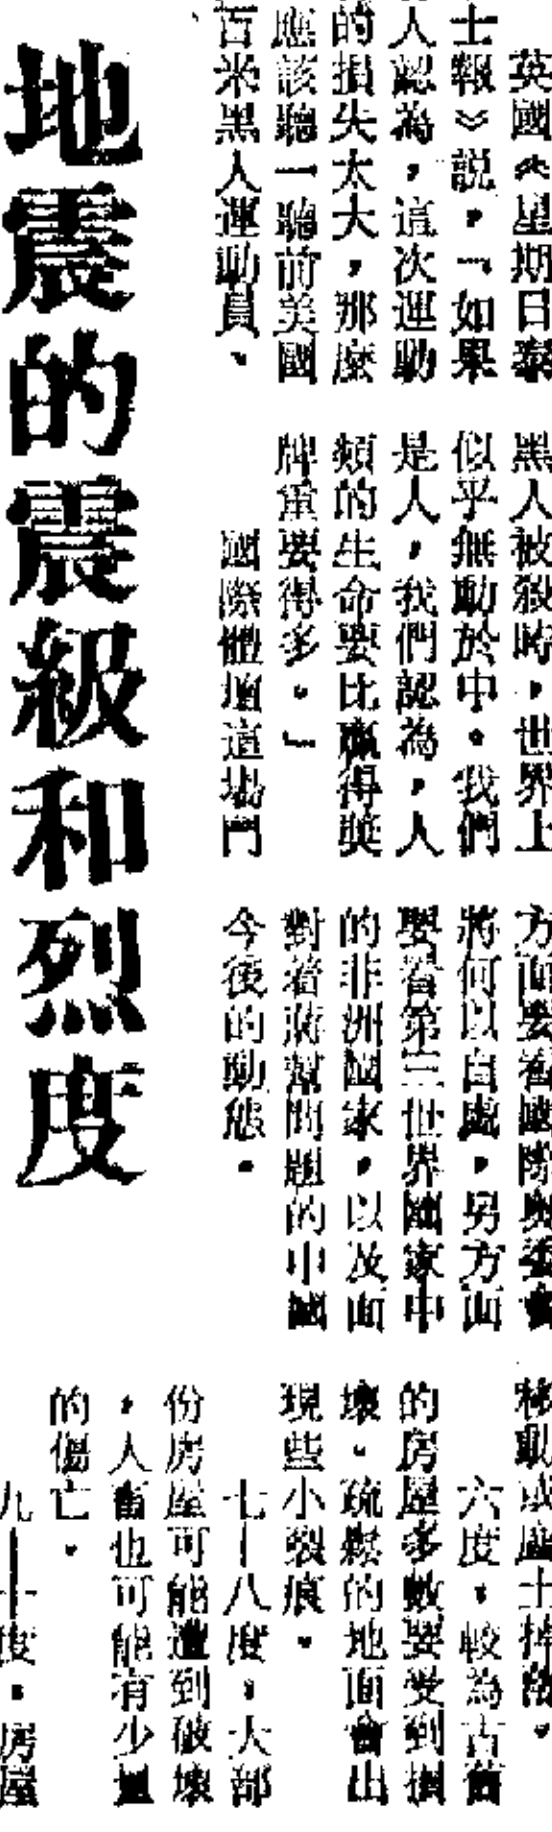 英國《星期日泰
士報》説，「如果
人認為，這次運動
的損失太大，那麼
應該聽一聽前美國
百米黑人運動員、
黑人被殺時，世界上
似乎無動於中。我們
是人，我們認為，人
類的生命要比贏得獎
牌重要得多。」
國際體壇這場鬥
方面要看國際奧委會
將何以自處，另方面
要看第三世界國家中
的非洲國家，以及面
對着蔣幫問題的中國
今後的動態。
地震的震級和烈度
移動或塵土掉落。
六度，較為古舊
的房屋多數要受到損
壞。疏鬆的地面會出
現些小裂痕。
七—八度，大部
份房屋可能遭到破壞
，人畜也可能有少量
的傷亡。
九—十度，房屋